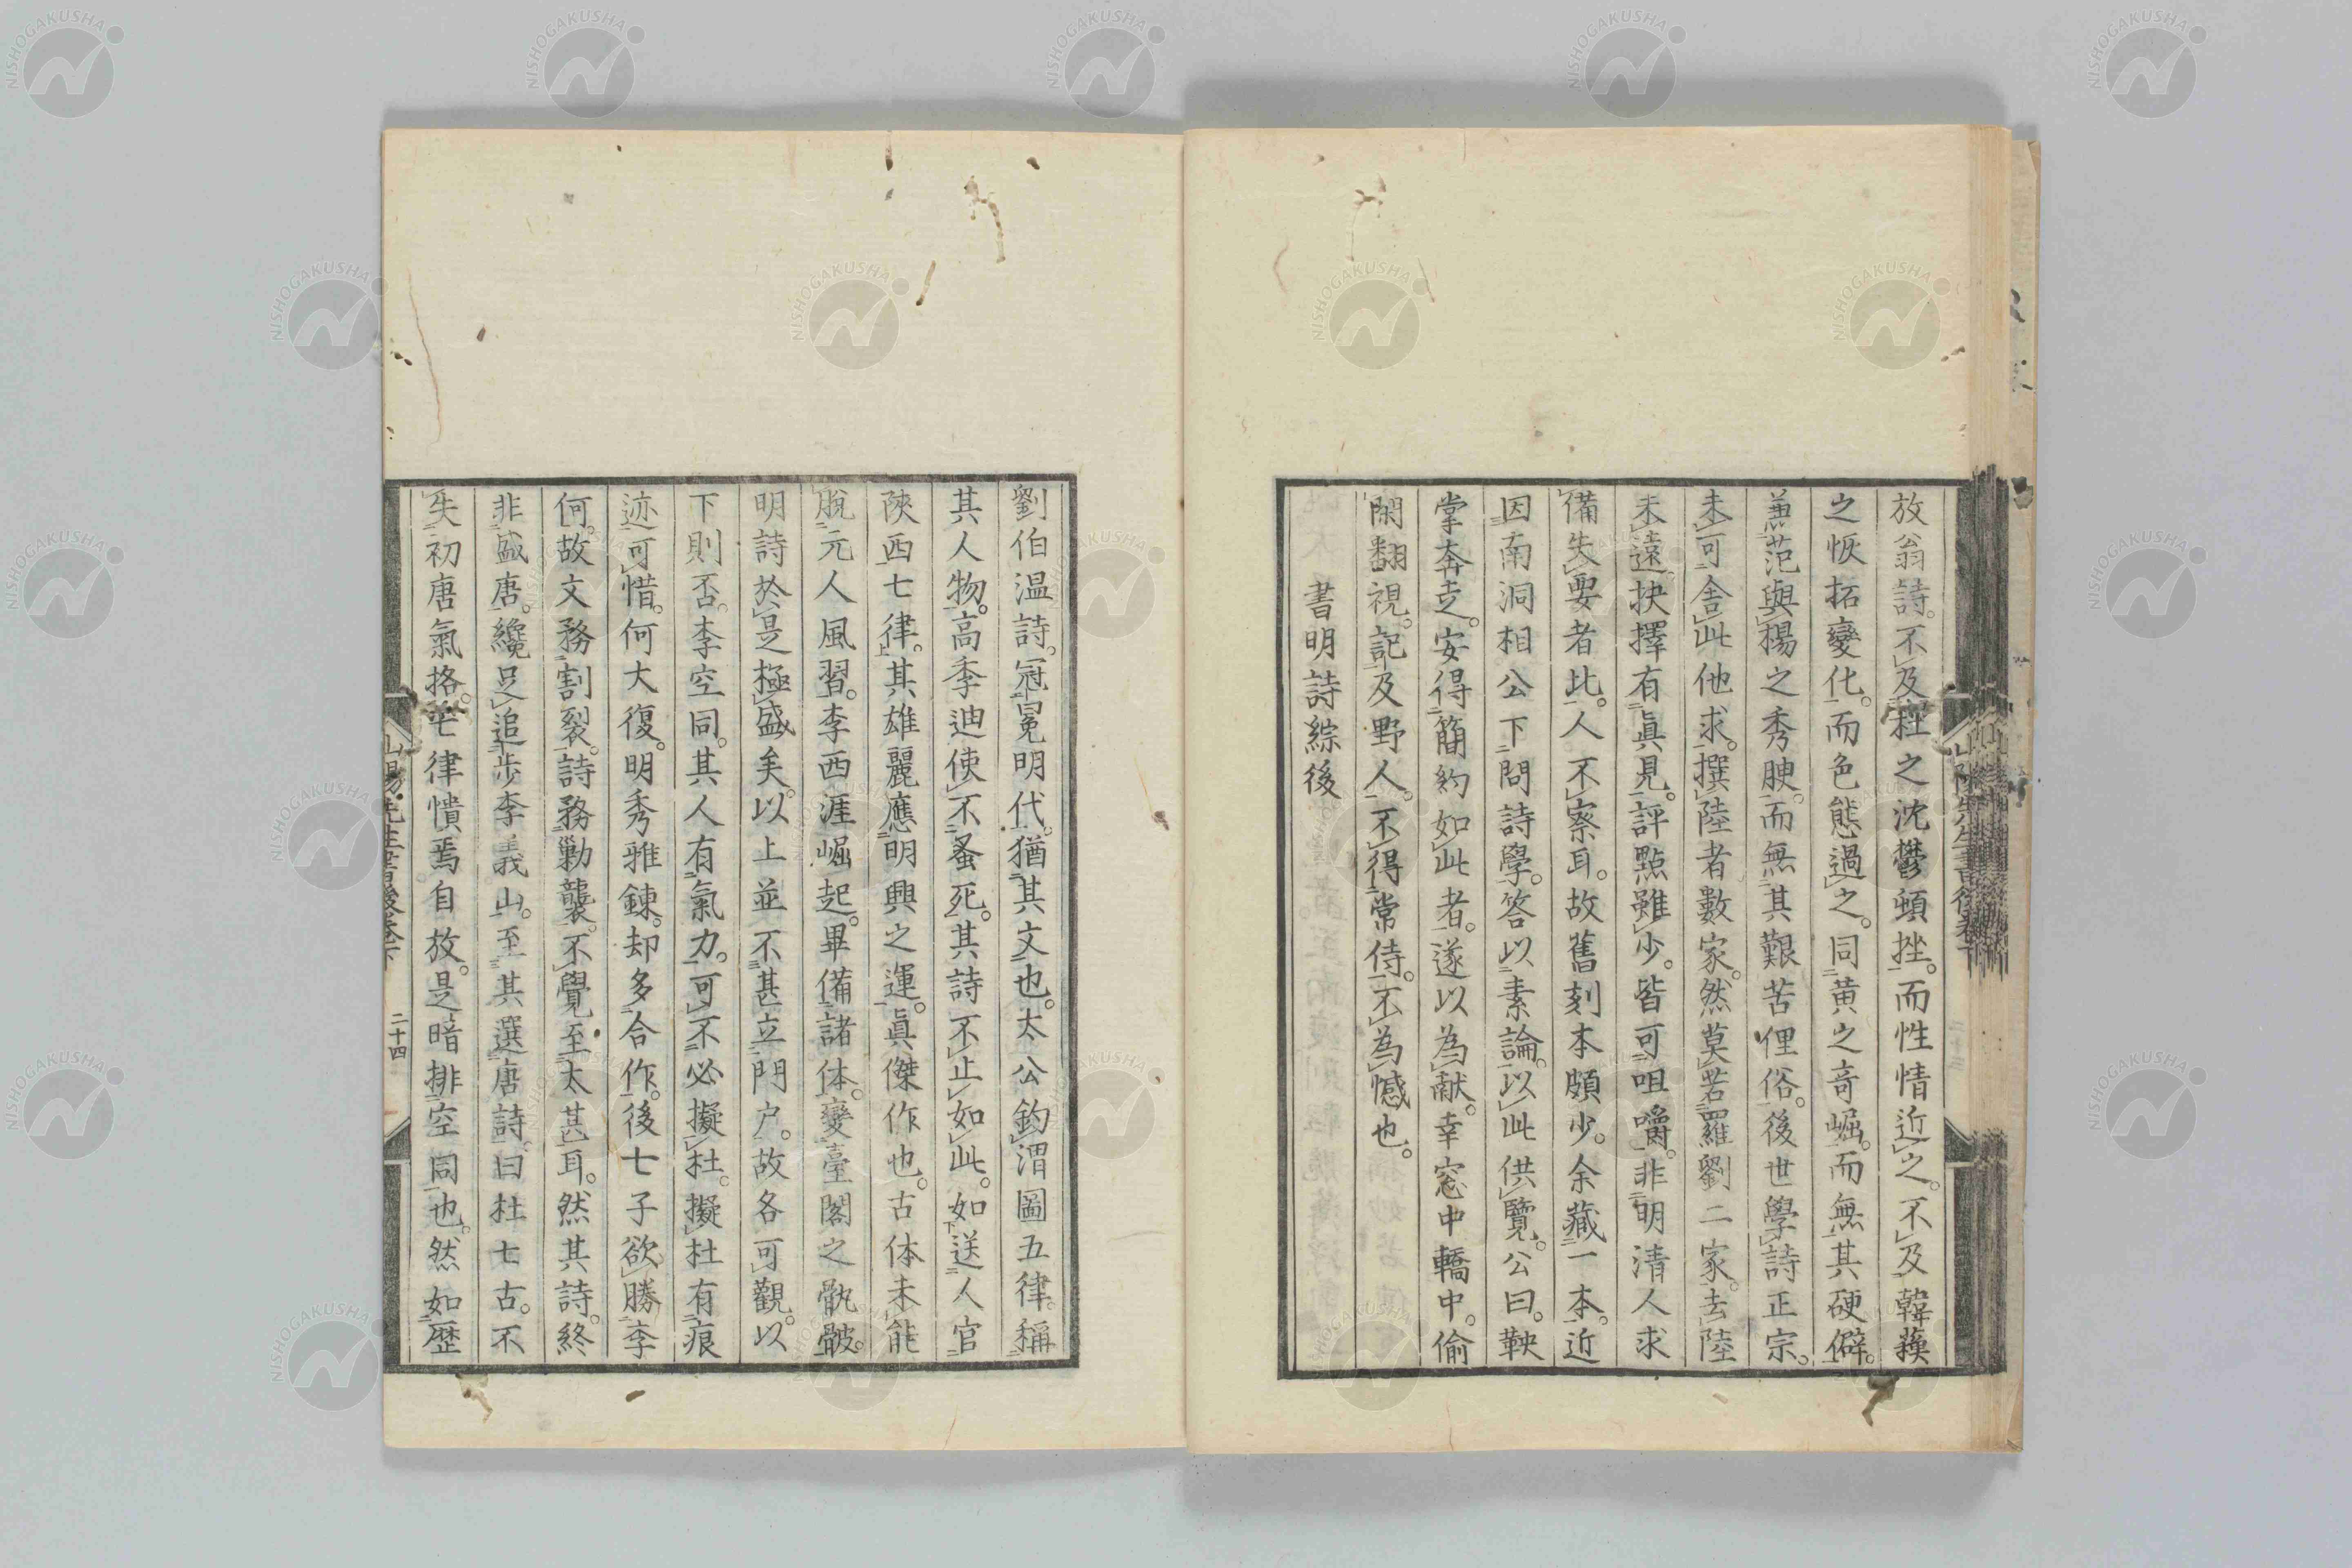 放翁詩。不及杜之沈鬱頓挫。而性情近之。不及韓蘓
之恢拓變化。而色態過之。同黄之竒崛。而無其硬僻。
兼范與楊之秀腴。而無其艱苦俚俗。後世學詩正宗。
未可舍此他求。撰陸者數家。然莫若羅劉二家。去陸
未遠。抉擇有眞見。評點雖少。皆可咀嚼。非明清人求
備失要者比。人不察耳。故舊刻本頗少。余藏一本。近
因南洞相公下問詩學。答以素論。以此供覽。公曰。鞅
掌奔走。安得簡約如此者。遂以為献。幸窓中轎中。偷
閑翻視。記及野人。不得常侍。不為憾也。
書明詩綜後
劉伯温詩。冠冕明代。猶其文也。太公釣渭圖五律。稱
其人物。高季迪使不蚤死。其詩不止如此。如送人官
陝西七律。其雄麗應明興之運。眞傑作也。古体未能
脫元人風習。李西涯崛起。畢備諸体。變臺閣之骫骳。
明詩於是極盛矣。以上並不甚立門户。故各可觀。以
下則否。李空同。其人有氣力。可不必擬杜。擬杜有痕
迹可惜。何大復。明秀雅錬。却多合作。後七子欲勝李
何。故文務割裂。詩務勦襲。不覺至太甚耳。然其詩。終
非盛唐。纔足追步李義山。至其選唐詩。曰杜七古。不
失初唐氣格。七律憒焉自放。是暗排空同也。然如歴
山陽先生書後卷下
二十四
NISHOGAKUSHA